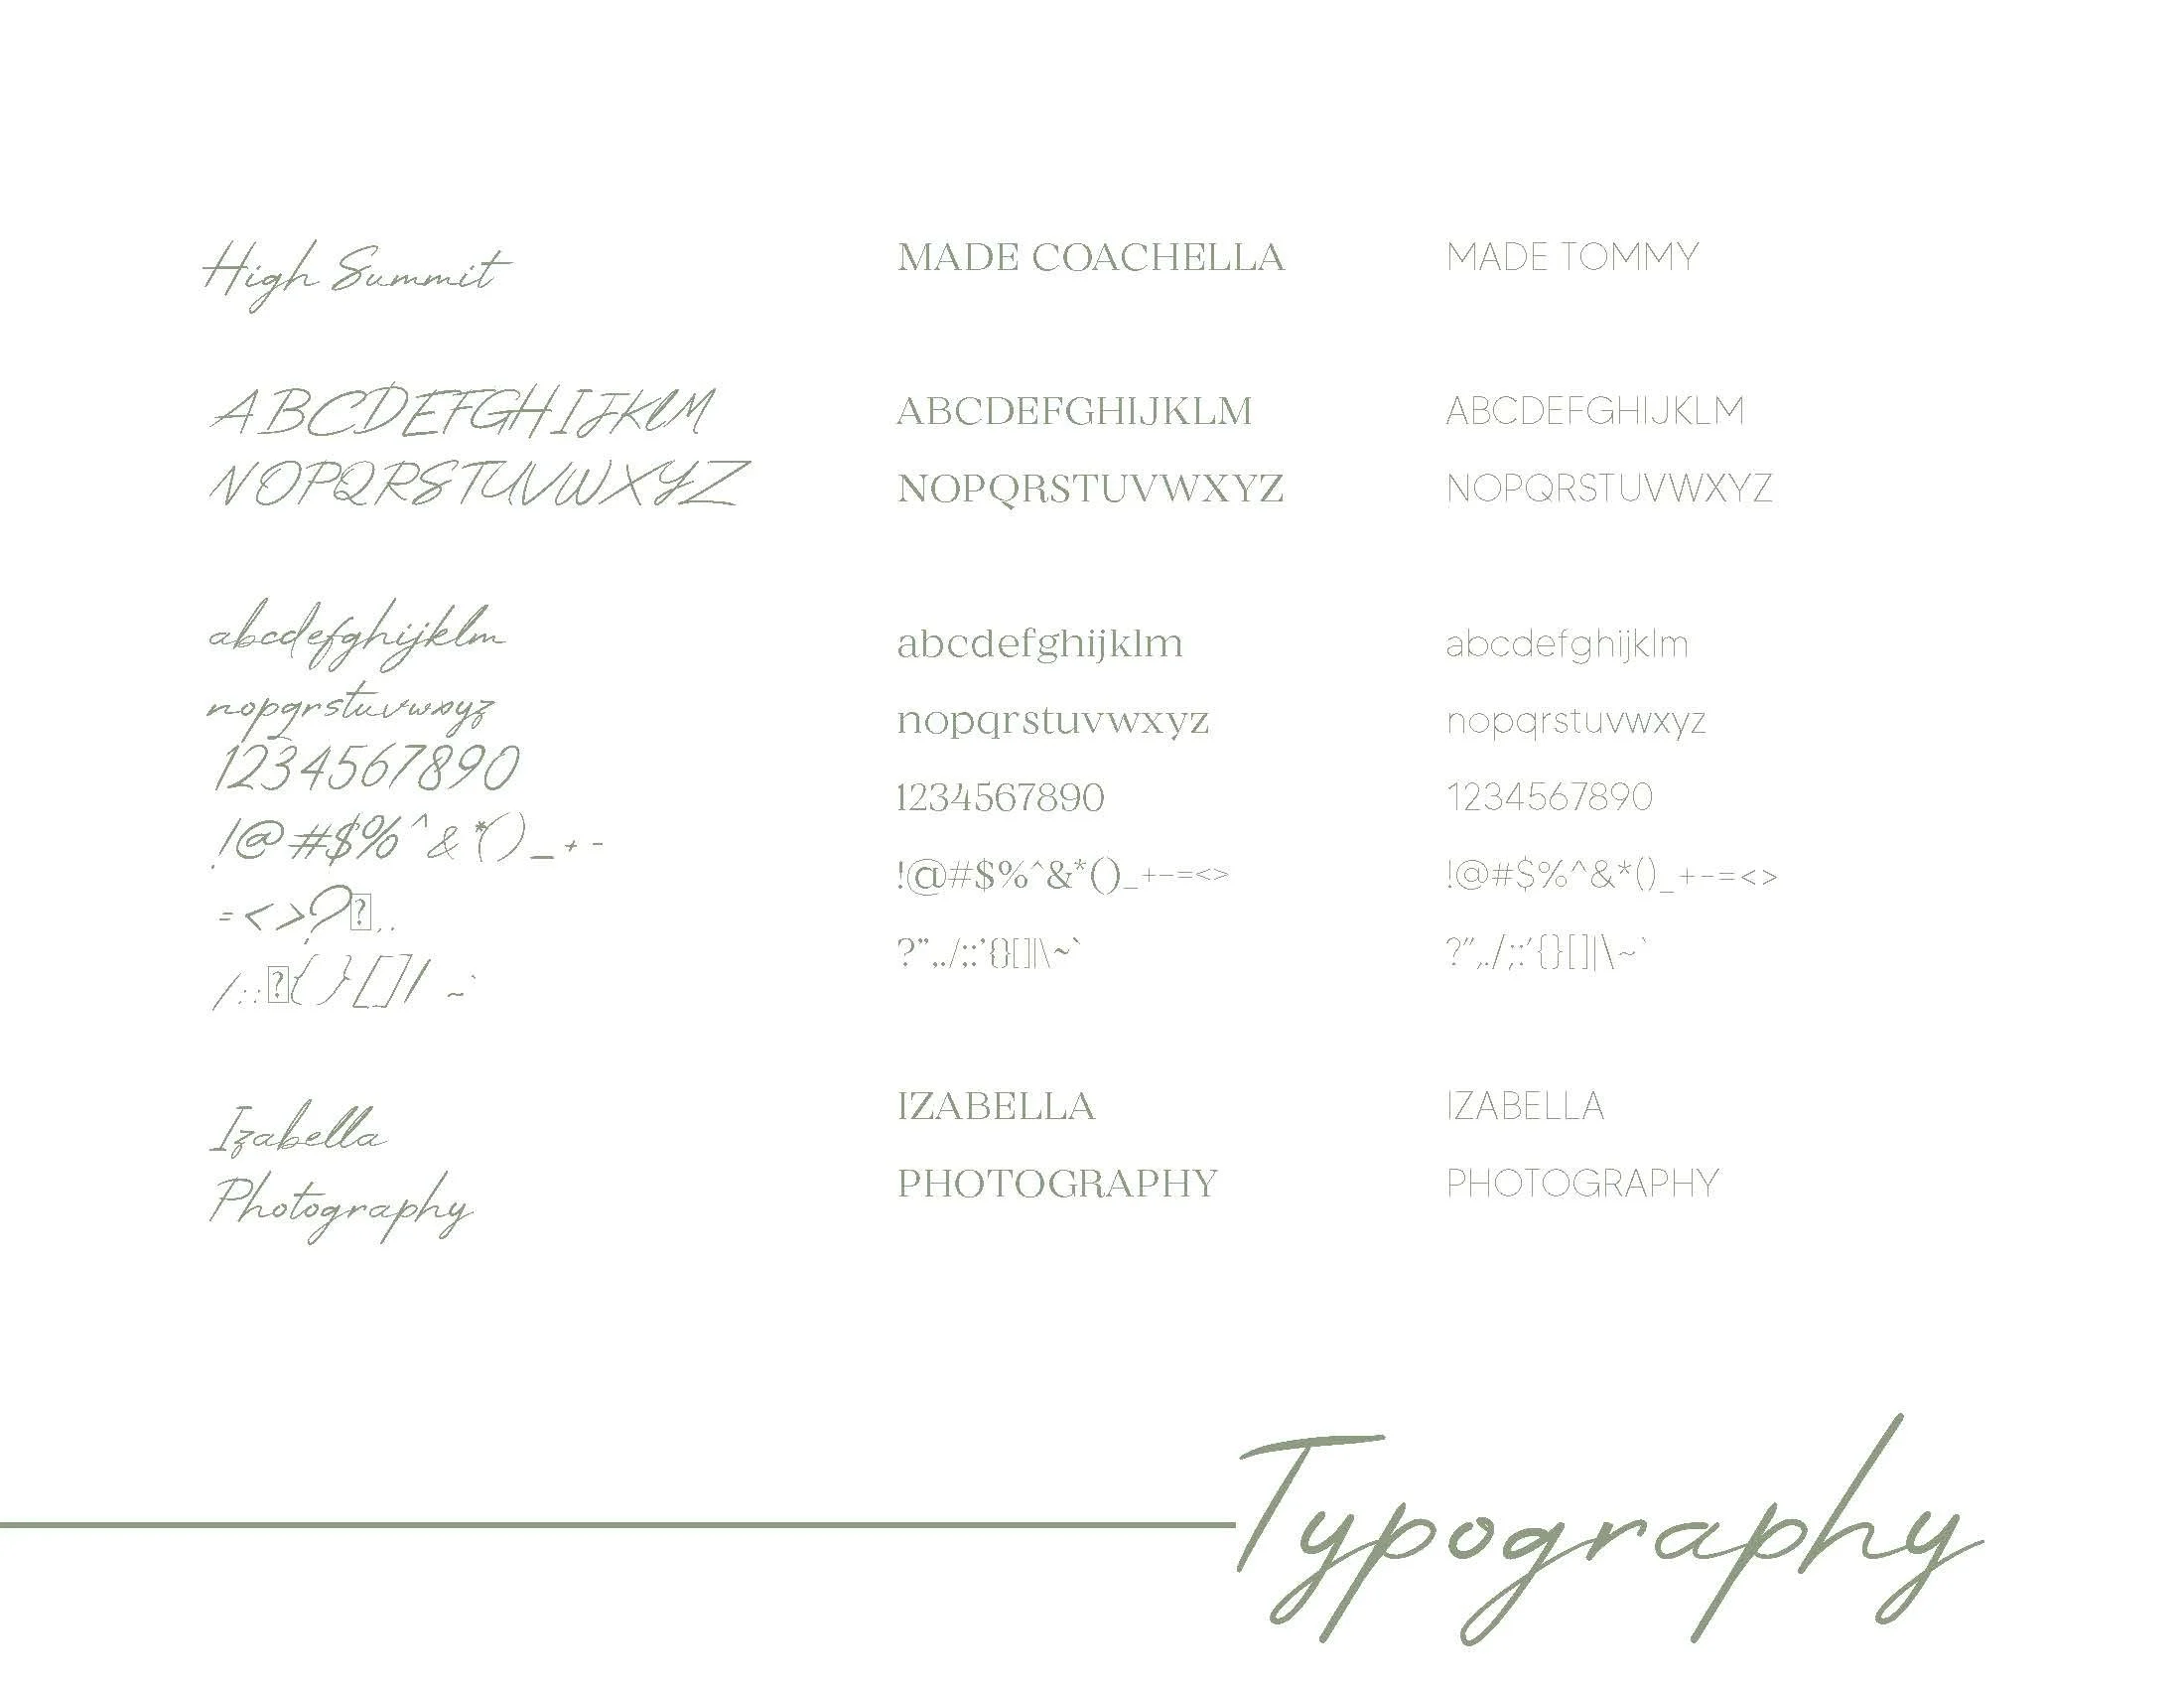 High Summit
ABCDEFGHIJKLM
NOPQRSTUVWXYZ
abcdefghijklm
nopqrstuvwxyz
1234567890
!@#$%^&*()_+-
=<>?�,.
/:;�{}[]| ~`
Izabella
Photography
MADE COACHELLA
ABCDEFGHIJKLM
NOPQRSTUVWXYZ
abcdefghijklm
nopqrstuvwxyz
1234567890
!@#$%^&*()_+-=<>
?”,./;:’{}[]|\~`
IZABELLA
PHOTOGRAPHY
MADE TOMMY
ABCDEFGHIJKLM
NOPQRSTUVWXYZ
abcdefghijklm
nopqrstuvwxyz
1234567890
!@#$%^&*()_+-=<>
?”,./;:’{}[]|\~`
IZABELLA
PHOTOGRAPHY
Typography